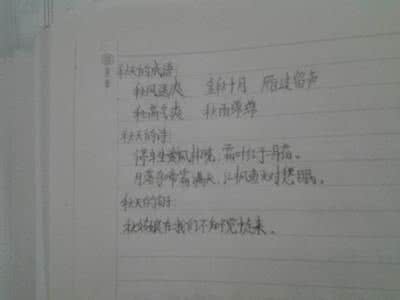 秋天的成语:
秋风送爽 金秋十月 雁过留声
秋高气爽 秋雨绵绵
秋天的诗:
停车坐爱枫林晚,霜叶红于二月花。
月落乌啼霜满天,江枫渔火对愁眠。
秋天的句子:
秋姑娘在我们不知不觉中走来。